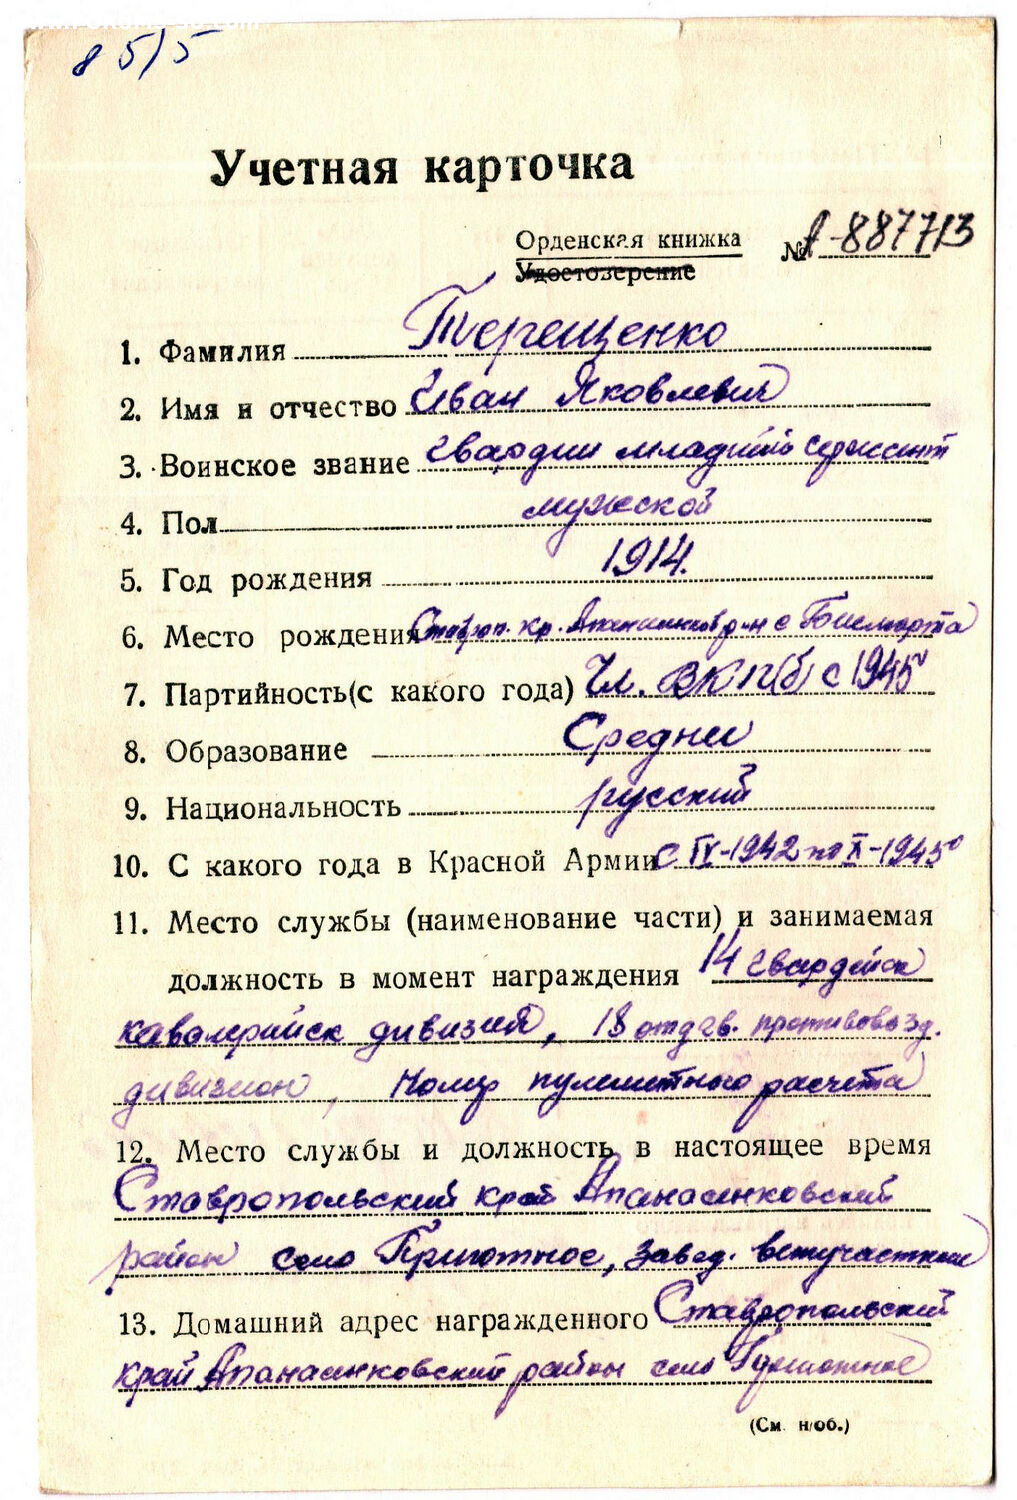 85/5
Учетная карточка
Орденская книжка № А-887713
Удостоверение
1. Фамилия Терещенко
2. Имя и отчество Иван Яковлевич
3. Воинское звание гвардии младший сержант
4. Пол мужской
5. Год рождения 1914.
6. Место рождения Ставроп. кр. Апанасенков р-н с
7. Партийность (с какого года) Чл. ВКП(б) с 1945
8. Образование Средние
9. Национальность русский
10. С какого года в Красной Армии с IV-1942 по X-1945
11. Место службы (наименование части) и занимаемая
должность в момент награждения 14 гвардейск
кавалерийск дивизия, 18 отд гв. противовозд.
дивизион, Номер пулеметного расчета
12. Место службы и должность в настоящее время
Ставропольский край Апанасенковский
район село Приютное, завед. ветучастком
13. Домашний адрес награжденного Ставропольский
край Апанасенковский район село Приютное
(См. н/об.)